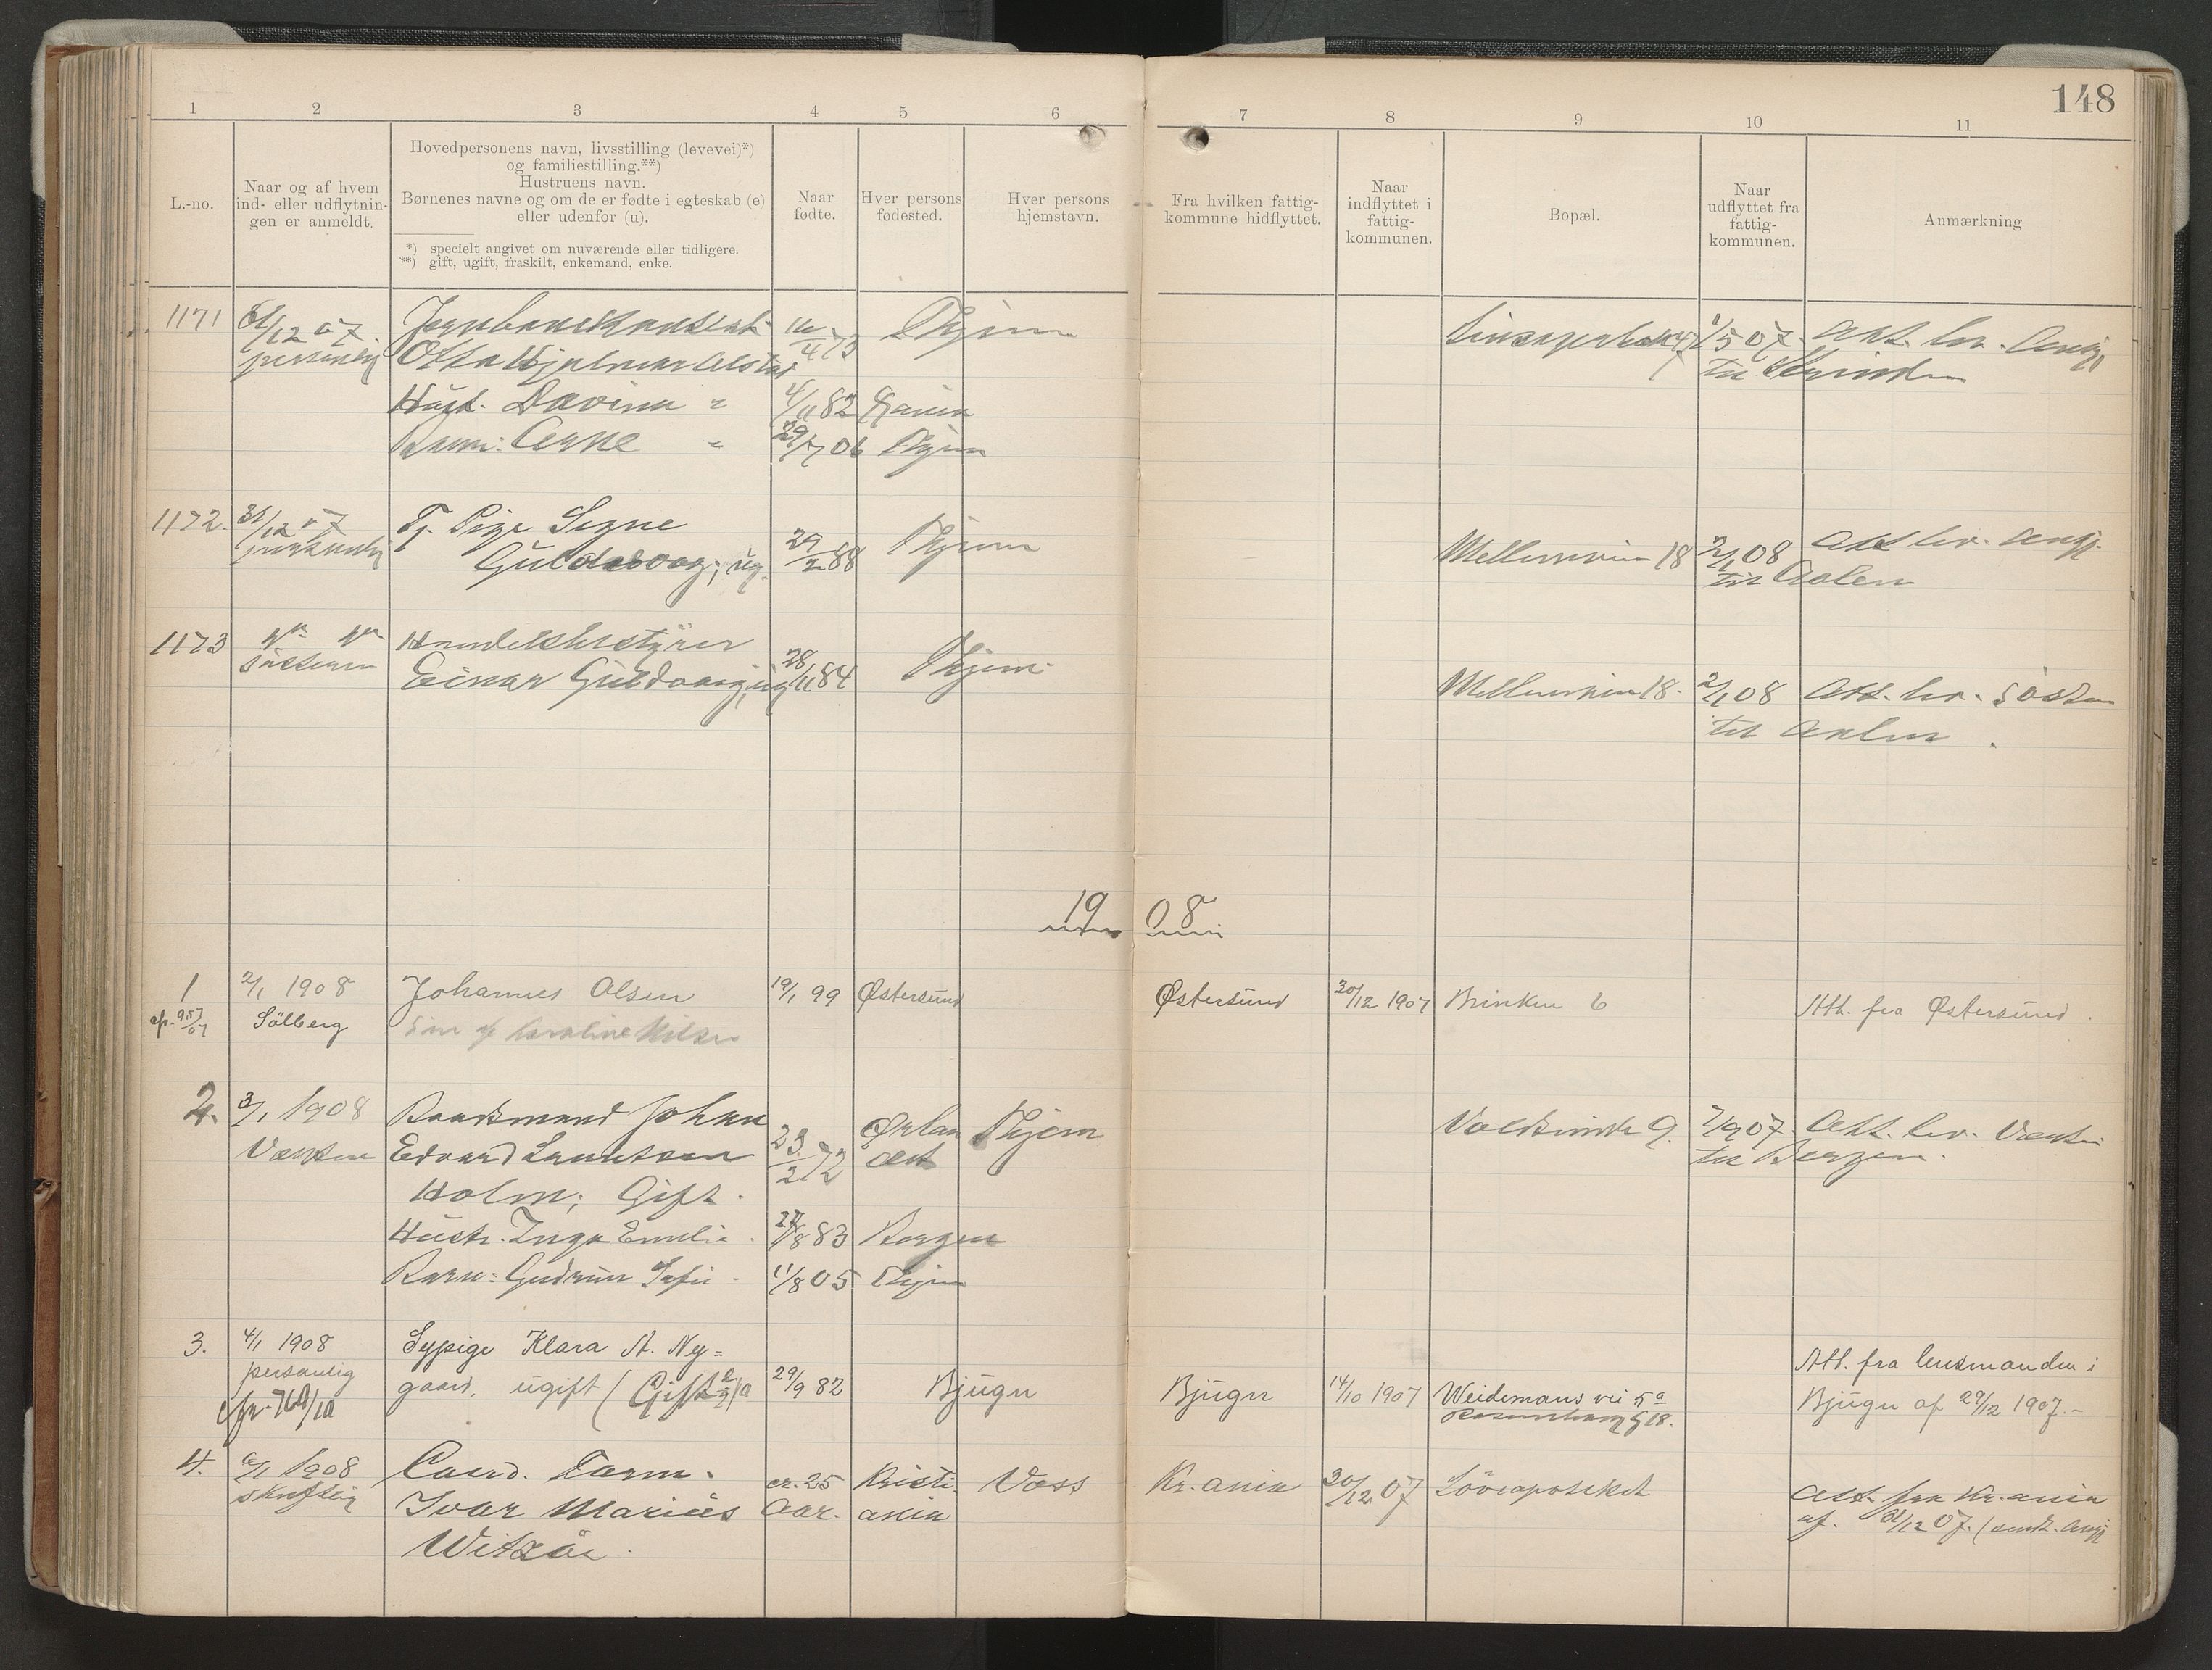 148
1 2 3 4 5 6 7 8 9 10 11
L.-no.
Naar og af hvem
ind- eller udflytnin-
gen er anmeldt.
Hovedpersonens navn, livsstilling (levevei)*)
og familiestilling.**)
Hustruens navn.
Børnenes navne og om de er fødte i egteskab (e)
eller udenfor (u).
*) specielt angivet om nuværende eller tidligere.
**) gift, ugift, fraskilt, enkemand, enke.
Naar
fødte.
Hver persons
fødested.
Hver persons
hjemstavn.
Fra hvilken fattig-
kommune hidflyttet.
Naar
indflyttet i
fattig-
kommunen.
Bopæl.
Naar
udflyttet fra
fattig-
kommunen.
Anmærkning
1171 31/12 07 16/4 73 Thjem 1/5 07. Att. lev. Angj.
personlig Otto Hjalmar til Strinden
Hust. Davina " 4/11 82
Barn: Arne " 29/7 06 Thjem
1172. 31/12 07 Tj. Pige Signe
personlig Guldvog; ug. 29/2 88 Thjem 18 2/1 08 Att lev. Angj.
til Aalen
1173 Handelsbestyrer
Søsteren Einar 28/11 84 Thjem 18. 2/1 08 Att. lev. Søsteren
til Aalen
1908
1 2/1 1908 Johannes Olsen 19/1 99 Østersund Østersund 30/12 1907 Brinken 6 Att. fra Østersund.
cfr. 957/07 Sölberg Sön af Karoline Nilsen
2. 3/1 1908 Baadsmand Johan 23/2 72 Ørlan Thjem 9. 7/9 07. Att. lev.
Edvard det til Bergen.
Holm; Gift.
Hustr. Inga Emelie 27/8 83 Bergen
Barn: Gudrun Sofie 11/8 05 Thjem
3. 4/1 1908 Sypige Klara A. Ny= Att. fra lensmanden i
personlig gaard, ugift (Gift 29/9 82 Bjugn Bjugn 14/10 1907 Weidemans vei 5a Bjugn af 29/12 1907.-
Rosenborg g 18.
4. 6/1 1908 Cand. Farm. cr. 25 Kristi- Voss Kr.ania 30/12 07 Löveapoteket Att. fra Kr.ania
skriftlig Ivar Marius Aar. ania af. 31/12 07. (sendt. Angj